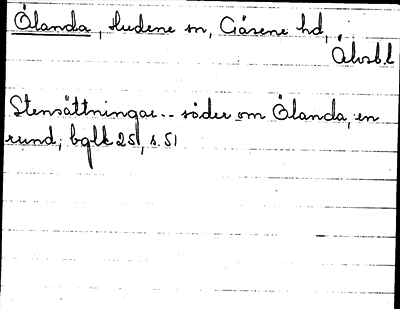 Ölanda, Hudene sn, Gäsene hd,
Älvsb.l
Stensättningar.. söder om Ölanda, en
rund; bglb 251, s. 51